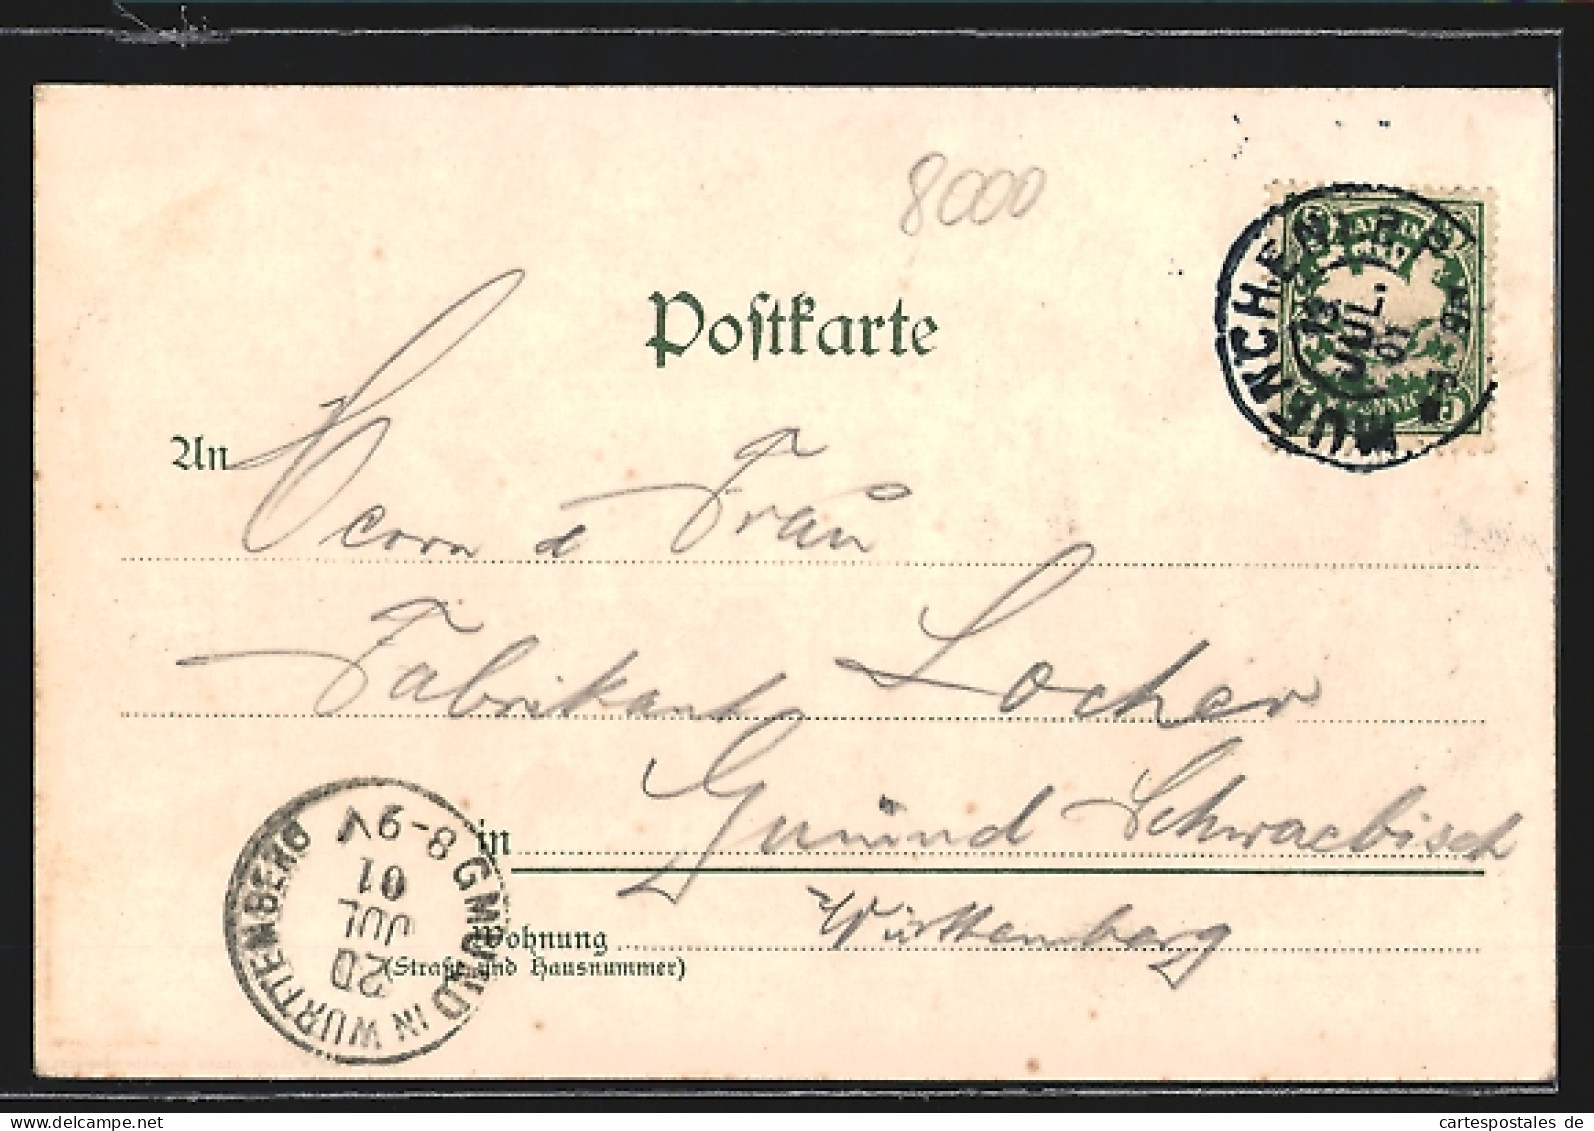 8000
BAYERN
MUENCHEN 2. B.P.
JUL.
01
PFENNIG
Postkarte
An Herrn & Frau
Fabrikant Locher
in Gmünd Schwaebisch
Württemberg
Wohnung
(Straße und Hausnummer)
GMÜND IN WÜRTTEMBERG
20
JUL
01
8-9 V
cartespostales de